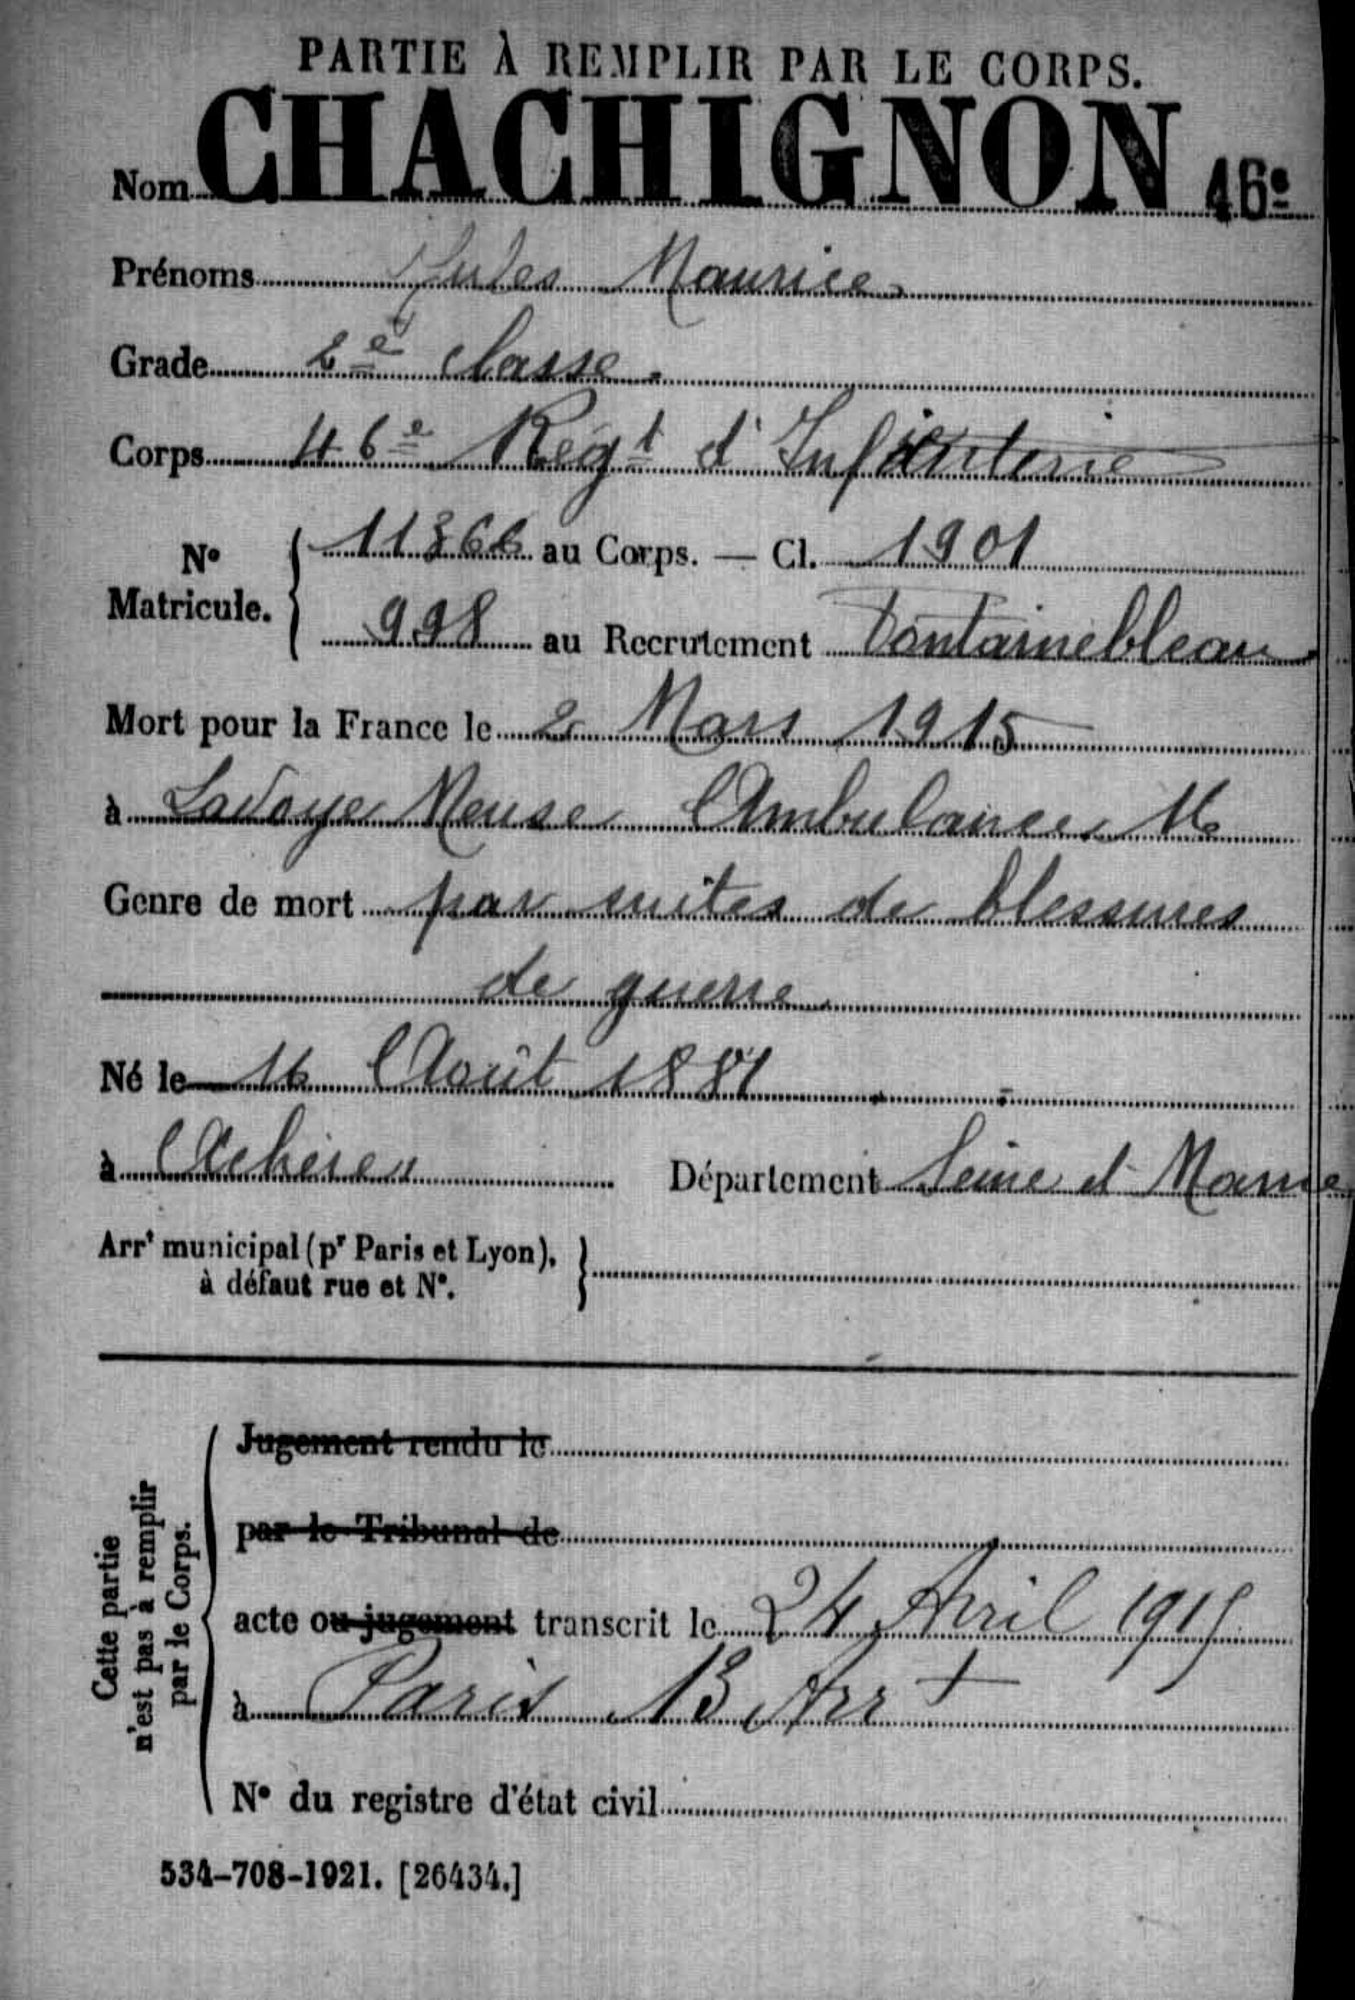 PARTIE À REMPLIR PAR LE CORPS.
Nom CHACHIGNON 46e
Prénoms Jules Maurice
Grade 2e classe.
Corps 46e Régt d'Infanterie
No Matricule. { 11366 au Corps. — Cl. 1901
998 au Recrutement Fontainebleau
Mort pour la France le 2 Mars 1915
à Lavoye Meuse Ambulance 16
Genre de mort par suites de blessures
de guerre
Né le 16 Août 1881
à Achères Département Seine et Marne
Arrt municipal (pr Paris et Lyon),
à défaut rue et No.
Cette partie
n'est pas à remplir
par le Corps.
Jugement rendu le
par le Tribunal de
acte ou jugement transcrit le 24 Avril 1915
à Paris 13 Arrt
No du registre d'état civil
534-708-1921. [26434.]